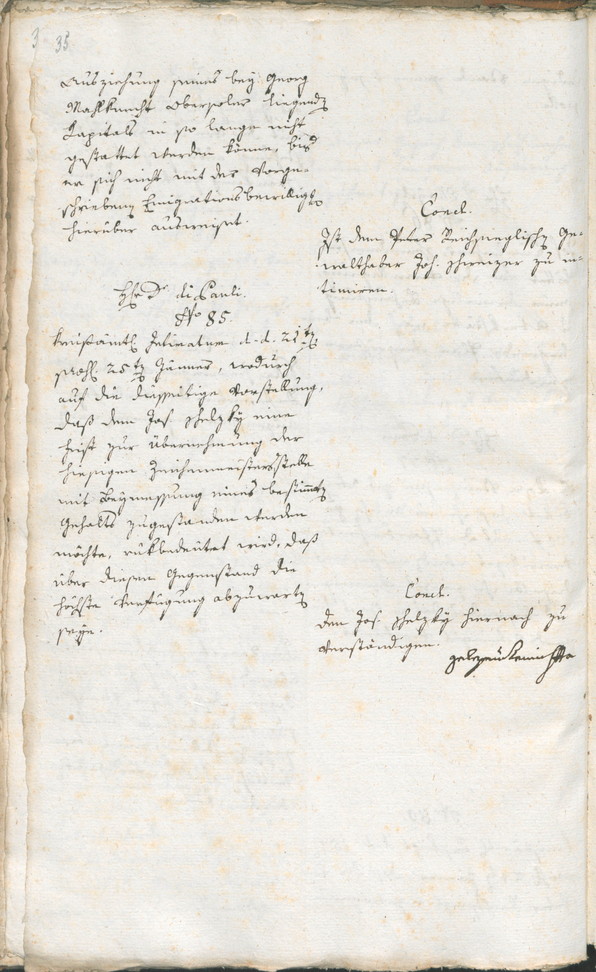 35
Ausziehung seines bey Georg
Mahlknecht Oberpoler liegend
Kapitals in so lange nicht
gestattet werden könne, bis
er sich nicht mit der vorge-
schriebenen Emigrationsbewillig
hierüber ausweiset.
Concl.
Ist dem Peter Reichsieglisch Ge-
walthaber Joh. Schweizer zu in-
timiren.
H. Dr. di Pauli.
No 85.
Kreisämtl Intimatum d. d. 21t
praes. 25t Jänner, wodurch
auf die diesseitige Vorstellung,
daß dem Jos. Schelzky eine
Frist zur Übernehmung der
hiesigen Zeichenmeistersstelle
mit Beymessung eines bestimmt
Gehalts zugestanden werden
möchte, rükbedeutet wird, daß
über diesen Gegenstand die
höchste Verfügung abzuwarten
seye.
Concl.
Dem Jos. Schelzky hiernach zu
verständigen.